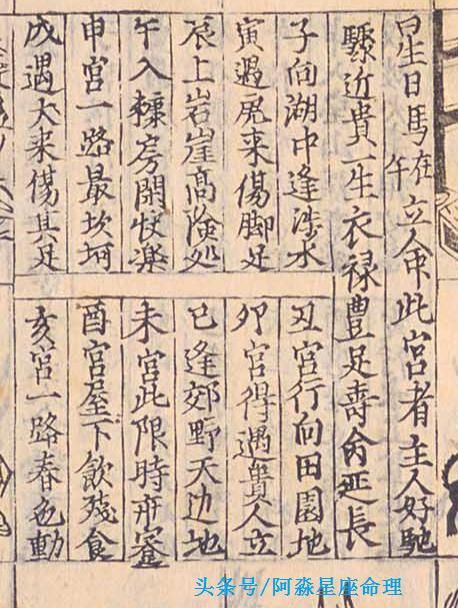 星日馬在午立命此宮者主人好馳
驟近貴一生衣禄豊足壽命延長
子向湖中逢涉水
丑宮行向田園地
寅遇虎来傷脚足
卯宮得遇貴人立
辰上岩崖高険処
巳逢郊野天边地
午入糠房閑快楽
未宮此限時
申宮一路最坎坷
酉宮屋下飲残食
戌遇犬来傷其足
亥宮一路春色動
头条号/阿淼星座命理